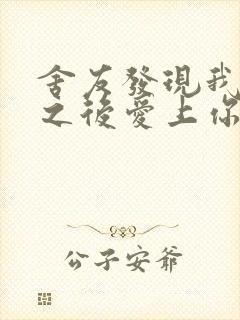 舍友發現我
之後愛上你
公子安爺